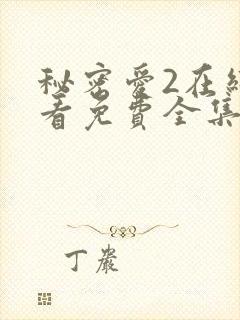 秘密爱2在线
看免費全集
丁嚴